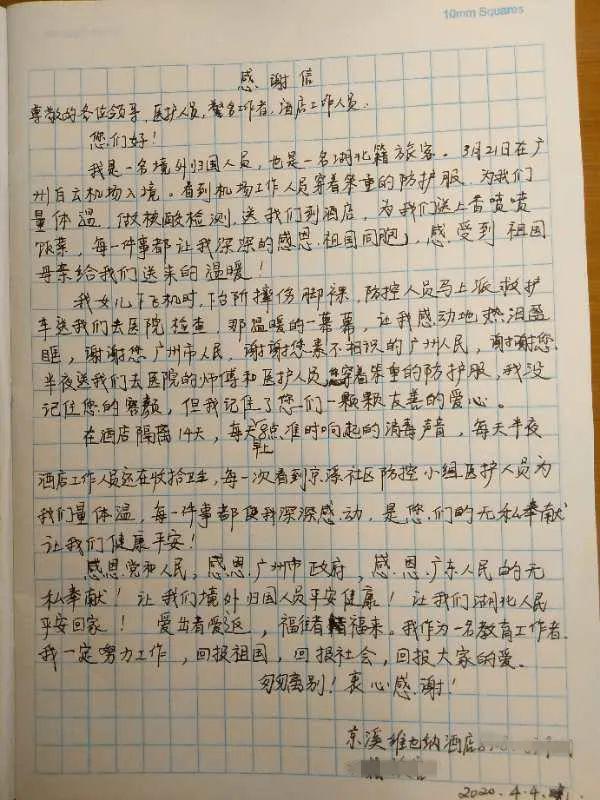 10mm Squares
感谢信
尊敬的各位领导,医护人员,警务工作者,酒店工作人员.
您们好!
我是一名境外归国人员,也是一名湖北籍旅客。3月21日在广
州白云机场入境。看到机场工作人员穿着笨重的防护服,为我们
量体温,做核酸检测,送我们到酒店,为我们送上香喷喷
饭菜,每一件事都让我深深的感恩.祖国同胞,感受到祖国
母亲给我们送来的温暖!
我女儿下飞机时,下台阶摔伤脚裸,防控人员马上派救护
车送我们去医院检查,那温暖的一幕幕,让我感动地热泪盈
眶,谢谢您广州市人民,谢谢您素不相识的广州人民,谢谢您
半夜送我们去医院的师傅和医护人员,您穿着笨重的防护服,我没
记住您的容颜,但我记住了您们一颗颗友善的爱心。
在酒店隔离14天,每天早上8点准时响起的消毒声音,每天半夜
酒店工作人员还在收拾卫生,每一次看到京溪社区防控小组医护人员为
我们量体温,每一件事都使我深深感动,是您们的无私奉献
让我们健康平安!
感恩党和人民,感恩广州市政府,感恩广东人民的无
私奉献!让我们境外归国人员平安健康!让我们湖北人民
平安回家!爱出者爱返,福往者福来。我作为一名教育工作者
我一定努力工作,回报祖国,回报社会,回报大家的爱。
匆匆离别!衷心感谢!
京溪维也纳酒店
2020.4.4.